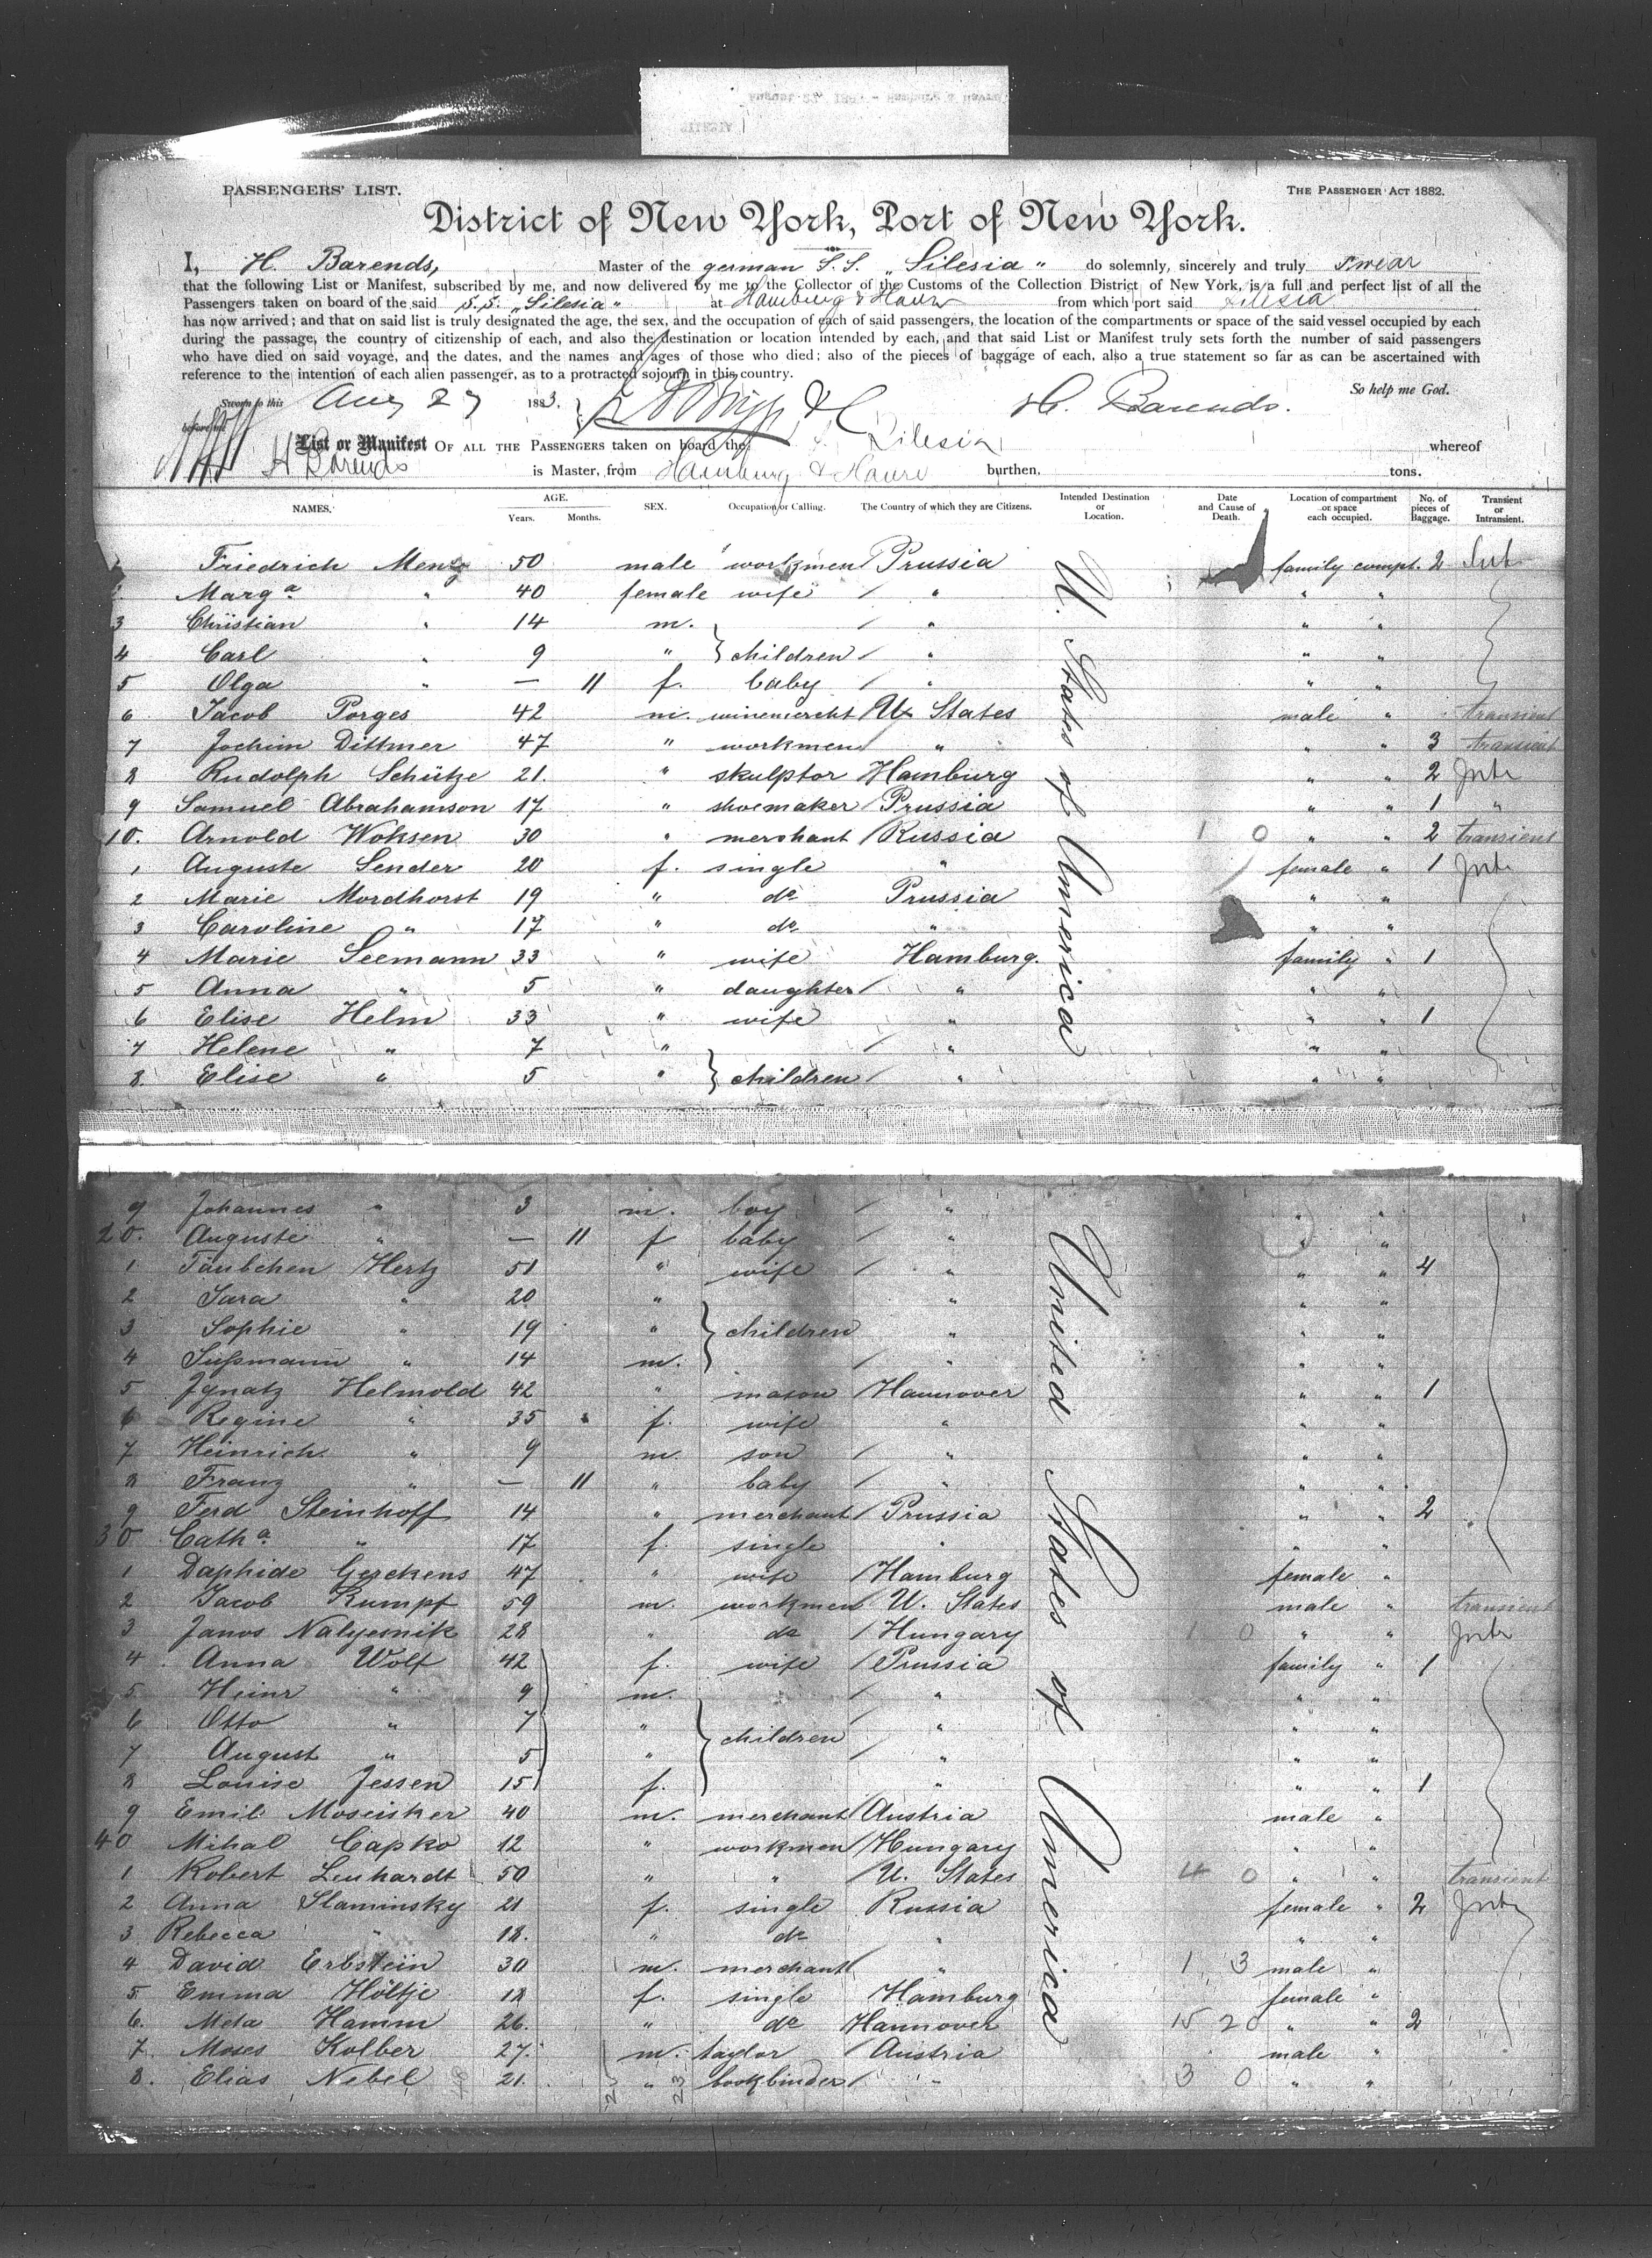 PASSENGERS' LIST. THE PASSENGER ACT 1882.
District of New York, Port of New York.
I, H. Barends, Master of the german S.S. „Silesia" do solemnly, sincerely and truly swear
that the following List or Manifest, subscribed by me, and now delivered by me to the Collector of the Customs of the Collection District of New York, is a full and perfect list of all the
Passengers taken on board of the said S.S. „Silesia" at Hamburg & Havre from which port said Silesia
has now arrived; and that on said list is truly designated the age, the sex, and the occupation of each of said passengers, the location of the compartments or space of the said vessel occupied by each
during the passage, the country of citizenship of each, and also the destination or location intended by each, and that said List or Manifest truly sets forth the number of said passengers
who have died on said voyage, and the dates, and the names and ages of those who died; also of the pieces of baggage of each, also a true statement so far as can be ascertained with
reference to the intention of each alien passenger, as to a protracted sojourn in this country.
Sworn to this Aug 27 1883. H. Barends. So help me God.
before me
List or Manifest OF ALL THE PASSENGERS taken on board the Silesia whereof
H Barends is Master, from Hamburg & Havre burthen, tons.
NAMES. AGE. Years. Months. SEX. Occupation or Calling. The Country of which they are Citizens. Intended Destination or Location. Date and Cause of Death. Location of compartment or space each occupied. No. of pieces of Baggage. Transient or Intransient.
Friedrich Menz 50 male workmen Prussia family compt. 2
Marg a " 40 female wife " " "
3 Christian " 14 m. " " "
4 Carl " 9 " children " " "
5 Olga " — 11 f. baby " " "
6 Jacob Porges 42 m. winemercht U. States male " transient
7 Jochim Dittmer 47 " workmen " " " 3 transient
8 Rudolph Schütze 21. " skulptor Hamburg " " 2
9 Samuel Abrahamson 17 " shoemaker Prussia " " 1 "
10. Arnold Woksen 30 " merchant Russia 1 0 " " 2 transient
1 Auguste Sender 20 f. single " female " 1
2 Marie Mordhorst 19 " do Prussia " "
3 Caroline " 17 " do " " "
4 Marie Seemann 33 " wife Hamburg. family " 1
5 Anna " 5 " daughter " " "
6 Elise Helm 33 " wife " " " 1
7 Helene " 7 " " " "
8. Elise " 5 " children " " "
U. States of America
9 Johannes " 3 m. boy " " "
20. Auguste " — 11 f baby " " "
1 Täubchen Hertz 51 " wife " " " 4
2 Sara " 20 " " " "
3 Sophie " 19 " children " " "
4 Süßmann " 14 m. " " "
5 Ignatz Helmold 42 " mason Hannover " " 1
6 Regine " 35 f. wife " " "
7 Heinrich " 9 m. son " " "
8 Franz " — 11 " baby " " "
9 Ferd Steinhoff 14 " merchant Prussia " " 2 "
30 Cath a " 17 f. single " " "
1 Daphide Gerckens 47 " wife Hamburg female "
2 Jacob Rumpf 59 m. workmen U. States male " transient
3 Janos Nalyesnik 28 " do Hungary 1 0 " "
4 Anna Wolf 42 f. wife Prussia family " 1
5. Heinr " 9 m. " " "
6 Otto " 7 " children " " "
7 August " 5 " " " "
8 Louise Jessen 15 f. " " " 1
9 Emil Moseisker 40 m. merchant Austria male "
40 Mihal Capko 12 " workmen Hungary " "
1 Robert Leuhardt 50 " " U. States 4 0 " " transient
2 Anna Slaminsky 21 f. single Russia female " 2
3 Rebecca " 18. " do " " "
4 David Erbstein 30 m. merchant " 1 3 male "
5 Emma Höltje 18 f. single Hamburg female "
6. Meta Hamm 26. " do Hannover 15 20 " " 2
7. Moses Kolber 27. m. taylor Austria male "
8. Elias Nebel 21. " bookbinder " 3 0 " "
United States of America
23